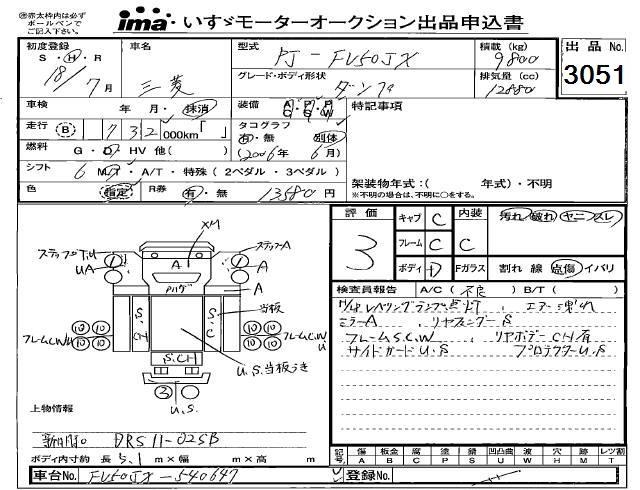 ㊟赤太枠内は必ず
ボールペンで
ご記入下さい。
ima・いすゞモーターオークション出品申込書
初度登録 車名 型式 PJ-FV50JX 積載 (kg) 9800 出品 No.
S・H・R 18/7月 三菱 グレード・ボディ形状 ダンプ 排気量 (cc) 12880 3051
車検 年 月・抹消 装備 A・P・P C・S・W 特記事項
走行 (B) 1732000km「 」 タコグラフ 有・無 別体
燃料 G・D・HV 他( ) (2006年 6月)
シフト 6 MT・A/T・特殊(2ペダル・3ペダル) 架装物年式:( 年式)・不明
色 指定 R券 有・無 13580円 ※不明の場合は、不明に○をする。
評価 3 キャブ C 内装 汚れ 破れ ヤニ スレ
フレーム C C
ボディ D Fガラス 割れ 線 点傷 イバリ
検査員報告 A/C(不良) B/T( )
ミラーA リヤフェンダーS
フレームS.C.W リヤボデーCH有
サイドガードU.S プロテクターU.S
XM
ステップA
A
UA
A
A
当板
S.CH
S.C
フレームC.W
S.CH
U.S.当板うき
③
U.S.
上物情報
新明和 DRS11-02SB
ボディ内寸約 長 5.1 m×幅 m×高 m
記号 傷 A 板金 B 腐 C 塗 P 錆 S 凹凸曲 U 波 W 穴 H 跡 M レツ割 T
車台No. FV50JX-540647 登録No.